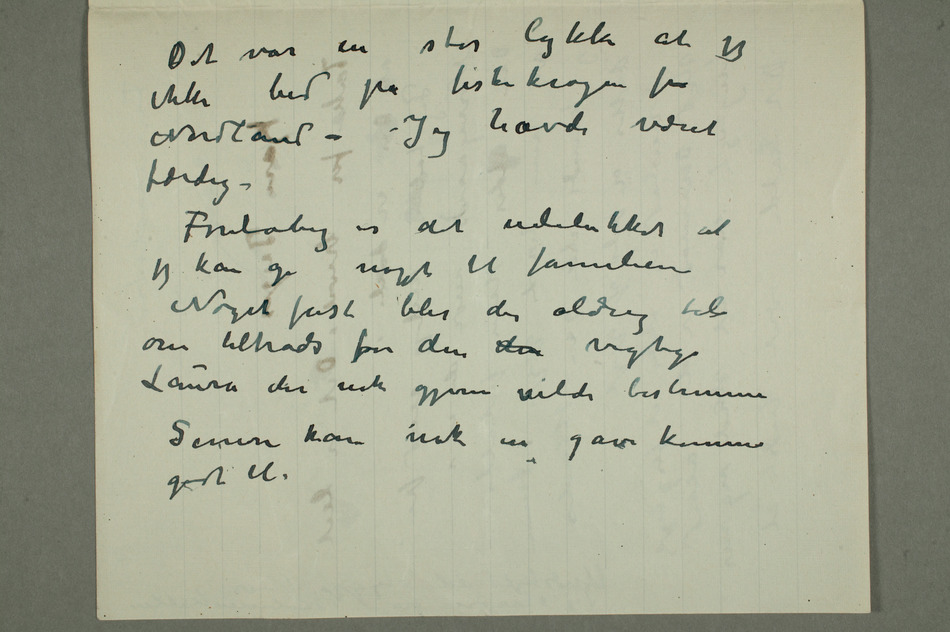 Det var en stor lykke at jeg
ikke bed på fiskekrogen fra
Nordland – Jeg havde været
færdig –
Foreløbig er det udelukket at
jeg kan gi noget til familien
Noget fast blir der aldrig tale
om tiltrods for den vigtige
Laura der nok gjerne vilde bestemme
Senere kan nok en gave komme
godt til.